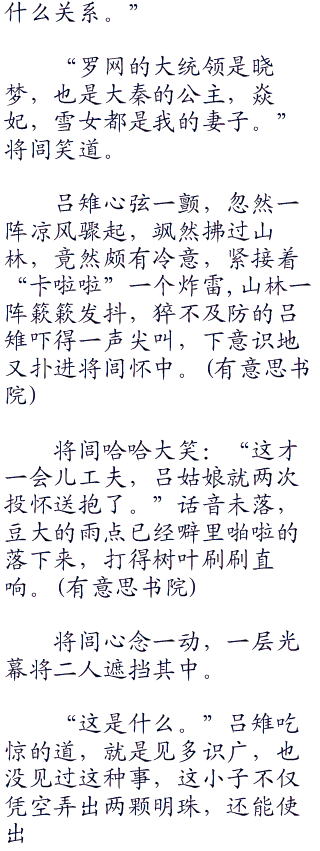 什么关系。”
“罗网的大统领是晓
梦，也是大秦的公主，焱
妃，雪女都是我的妻子。”
将闾笑道。
吕雉心弦一颤，忽然一
阵凉风骤起，飒然拂过山
林，竟然颇有冷意，紧接着
“卡啦啦”一个炸雷,山林一
阵簌簌发抖，猝不及防的吕
雉吓得一声尖叫，下意识地
又扑进将闾怀中。(有意思书
院)
将闾哈哈大笑：“这才
一会儿工夫，吕姑娘就两次
投怀送抱了。”话音未落，
豆大的雨点已经噼里啪啦的
落下来，打得树叶刷刷直
响。(有意思书院)
将闾心念一动，一层光
幕将二人遮挡其中。
“这是什么。”吕雉吃
惊的道，就是见多识广，也
没见过这种事，这小子不仅
凭空弄出两颗明珠，还能使
出